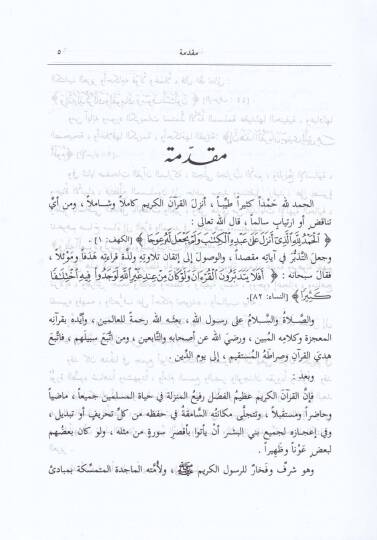 مقدمة ٥
مقدّمة
الحمد لله حَمْداً كثيراً طيِّباً ، أنزلَ القرآنَ الكريم كاملاً وشاملاً ، ومن أيِّ
تناقضٍ أو ارتيابٍ سالماً ، قال اللهُ تعالى :
﴿ الْحَمْدُ لِلَّهِ الَّذِي أَنزَلَ عَلَىٰ عَبْدِهِ الْكِتَابَ وَلَمْ يَجْعَل لَّهُ عِوَجًا ﴾ [الكهف: ١] .
وجعلَ التَّدبُّرَ في آياته مقصداً ، والوصول إلى إتقان تلاوته ولذَّة قراءته هَدَفاً ومَوْئلاً ،
فقالَ سبحانه : ﴿ أَفَلَا يَتَدَبَّرُونَ الْقُرْآنَ وَلَوْ كَانَ مِنْ عِندِ غَيْرِ اللَّهِ لَوَجَدُوا فِيهِ اخْتِلَافًا
كَثِيرًا ﴾ [النساء: ٨٢].
والصَّلاةُ والسَّلامُ على رسول الله ، بعثَـه الله رحمةً للعالمين ، وأيَّده بقرآنِه
المعجزة وكلامِه المُبين ، ورضيَ الله عن أصحابِه والتَّابعين ، ومن اتَّبعَ سبيلَهم ، فاتَّبعَ
هديَ القرآنِ وصراطَهُ المُستقيم ، إلى يوم الدِّين .
وبعد :
فإنَّ القرآن الكريم عظيمُ الفضل رفيعُ المنزلة في حياة المسلمين جميعاً ، ماضياً
وحاضراً ومستقبلاً ، وتتجلَّى مكانتُه السَّامقةُ في حفظه من كلِّ تحريفٍ أو تبديل ،
وفي إعجازه لجميع بني البشر أنْ يأتوا بأقصرِ سورةٍ من مثله ، ولو كان بعضُهم
لبعضٍ عَوْناً وظَهيراً .
وهو شرفٌ وفَخارٌ للرسول الكريم ﷺ ، ولأمَّته الماجدة المتمسِّكة بمبادئ